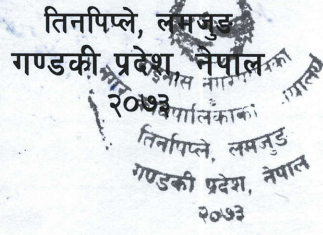 तिनपिप्ले, लमजुङ
गण्डकी प्रदेश, नेपाल
२०७३
तिनपिप्ले, लमजुङ
गण्डकी प्रदेश, नेपाल
२०७३